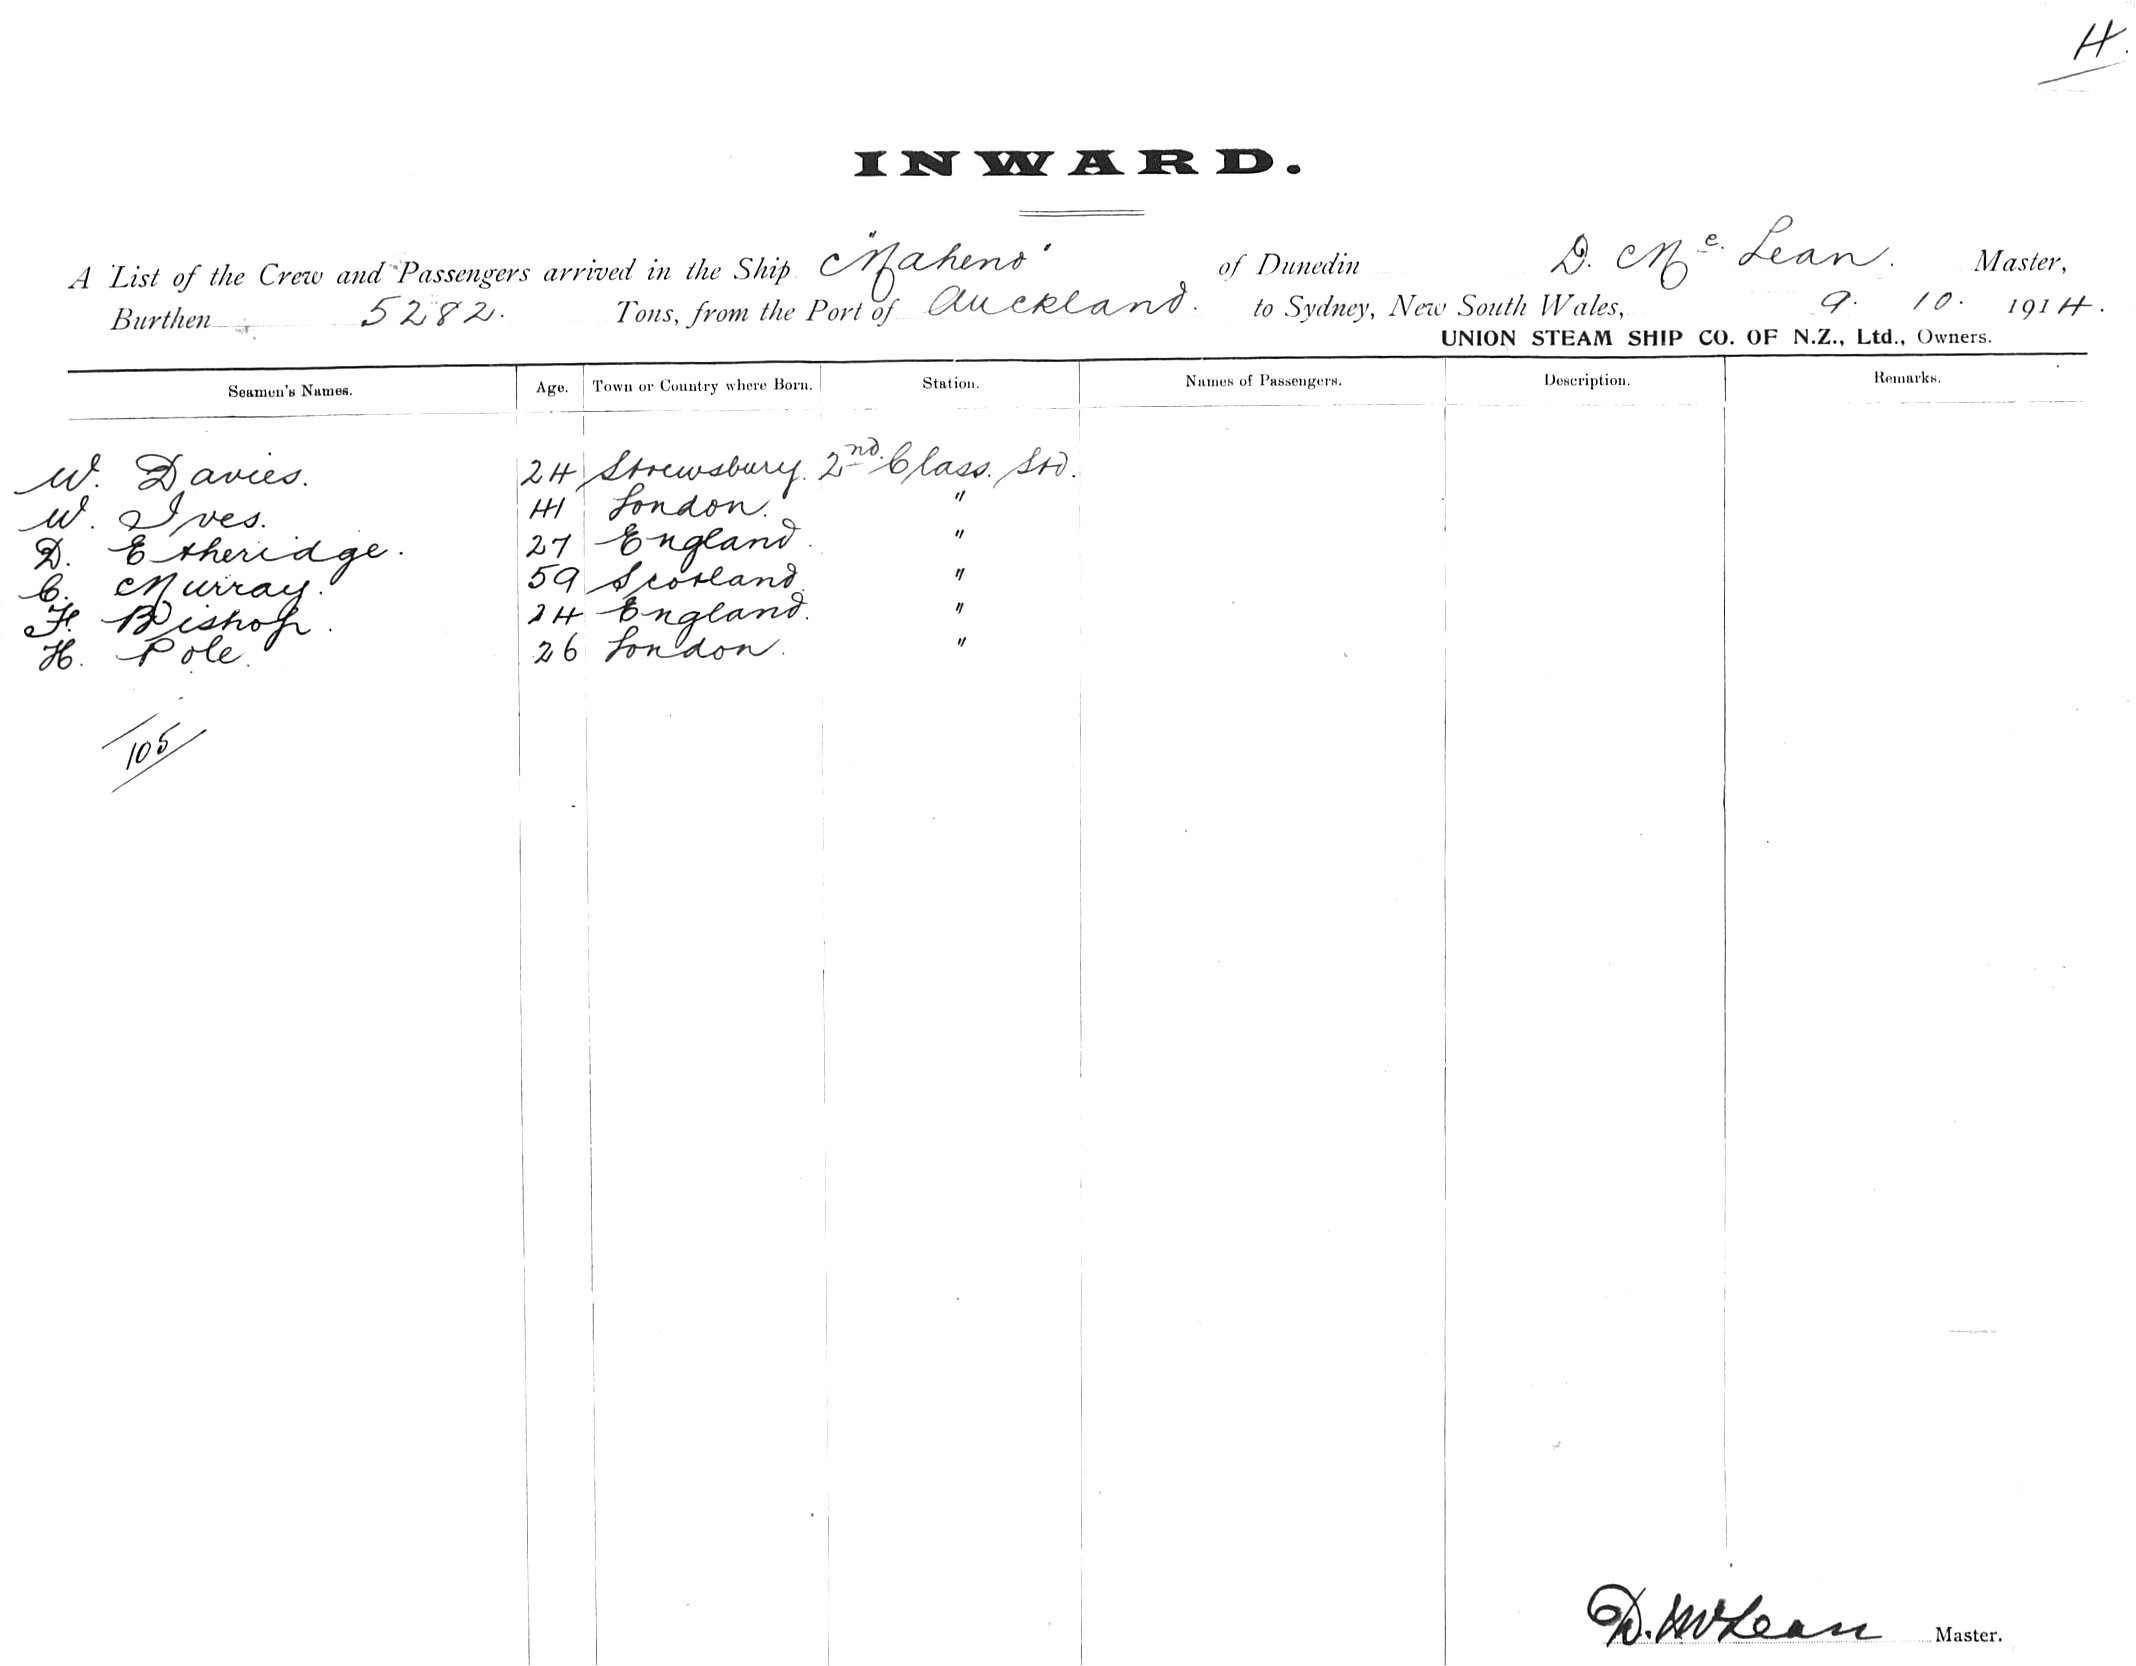 4.
INWARD.
A List of the Crew and Passengers arrived in the Ship "Maheno" of Dunedin D. Mc Lean. Master,
Burthen 5282. Tons, from the Port of Auckland. to Sydney, New South Wales, 9. 10. 1914.
UNION STEAM SHIP CO. OF N.Z., Ltd., Owners.
Seamen's Names. Age. Town or Country where Born. Station. Names of Passengers. Description. Remarks.
W. Davies. 24 Strewsbury. 2nd. Class. Std.
W. Ives. 41 London. "
D. Etheridge. 27 England. "
C. Murray. 59 Scotland. "
F. Bishop. 24 England. "
H. Pole. 26 London. "
105
D. McLean Master.